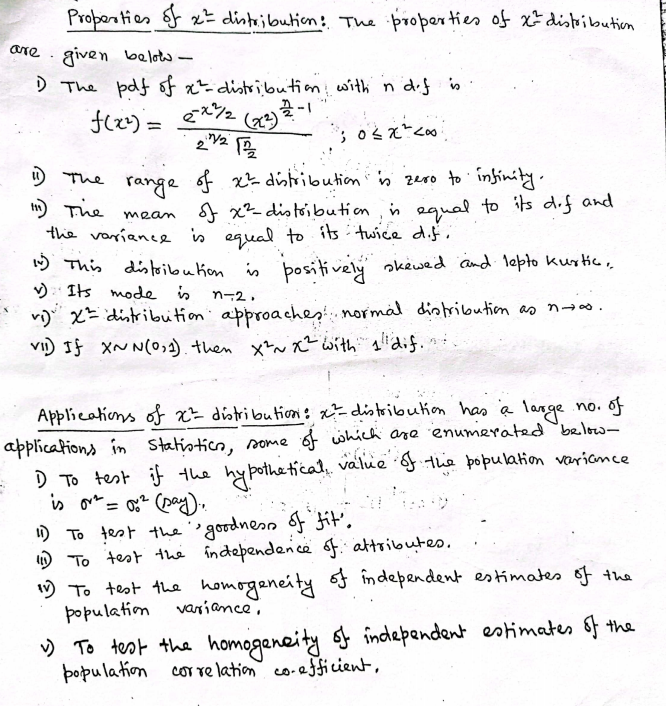 Properties of x²- distribution: The properties of x²- distribution
are given below —
i) The pdf of x²- distribution with n d.f is
f(x²) = e^{-x²/2} (x²)^{n/2 - 1} / 2^{n/2} Γn/2 ; 0 ≤ x² < ∞
ii) The range of x²- distribution is zero to infinity.
iii) The mean of x²- distribution is equal to its d.f and
the variance is equal to its twice d.f.
iv) This distribution is positively skewed and lepto kurtic.
v) Its mode is n-2.
vi) x²- distribution approaches normal distribution as n→∞.
vii) If X~N(0,1) then X²~ x² with 1 d.f.
Applications of x²- distribution: x²- distribution has a large no. of
applications in Statistics, some of which are enumerated below—
i) To test if the hypothetical value of the population variance
is σ² = σ₀² (say).
ii) To test the 'goodness of fit'.
iii) To test the independence of attributes.
iv) To test the homogeneity of independent estimates of the
population variance.
v) To test the homogeneity of independent estimates of the
population correlation co-efficient.